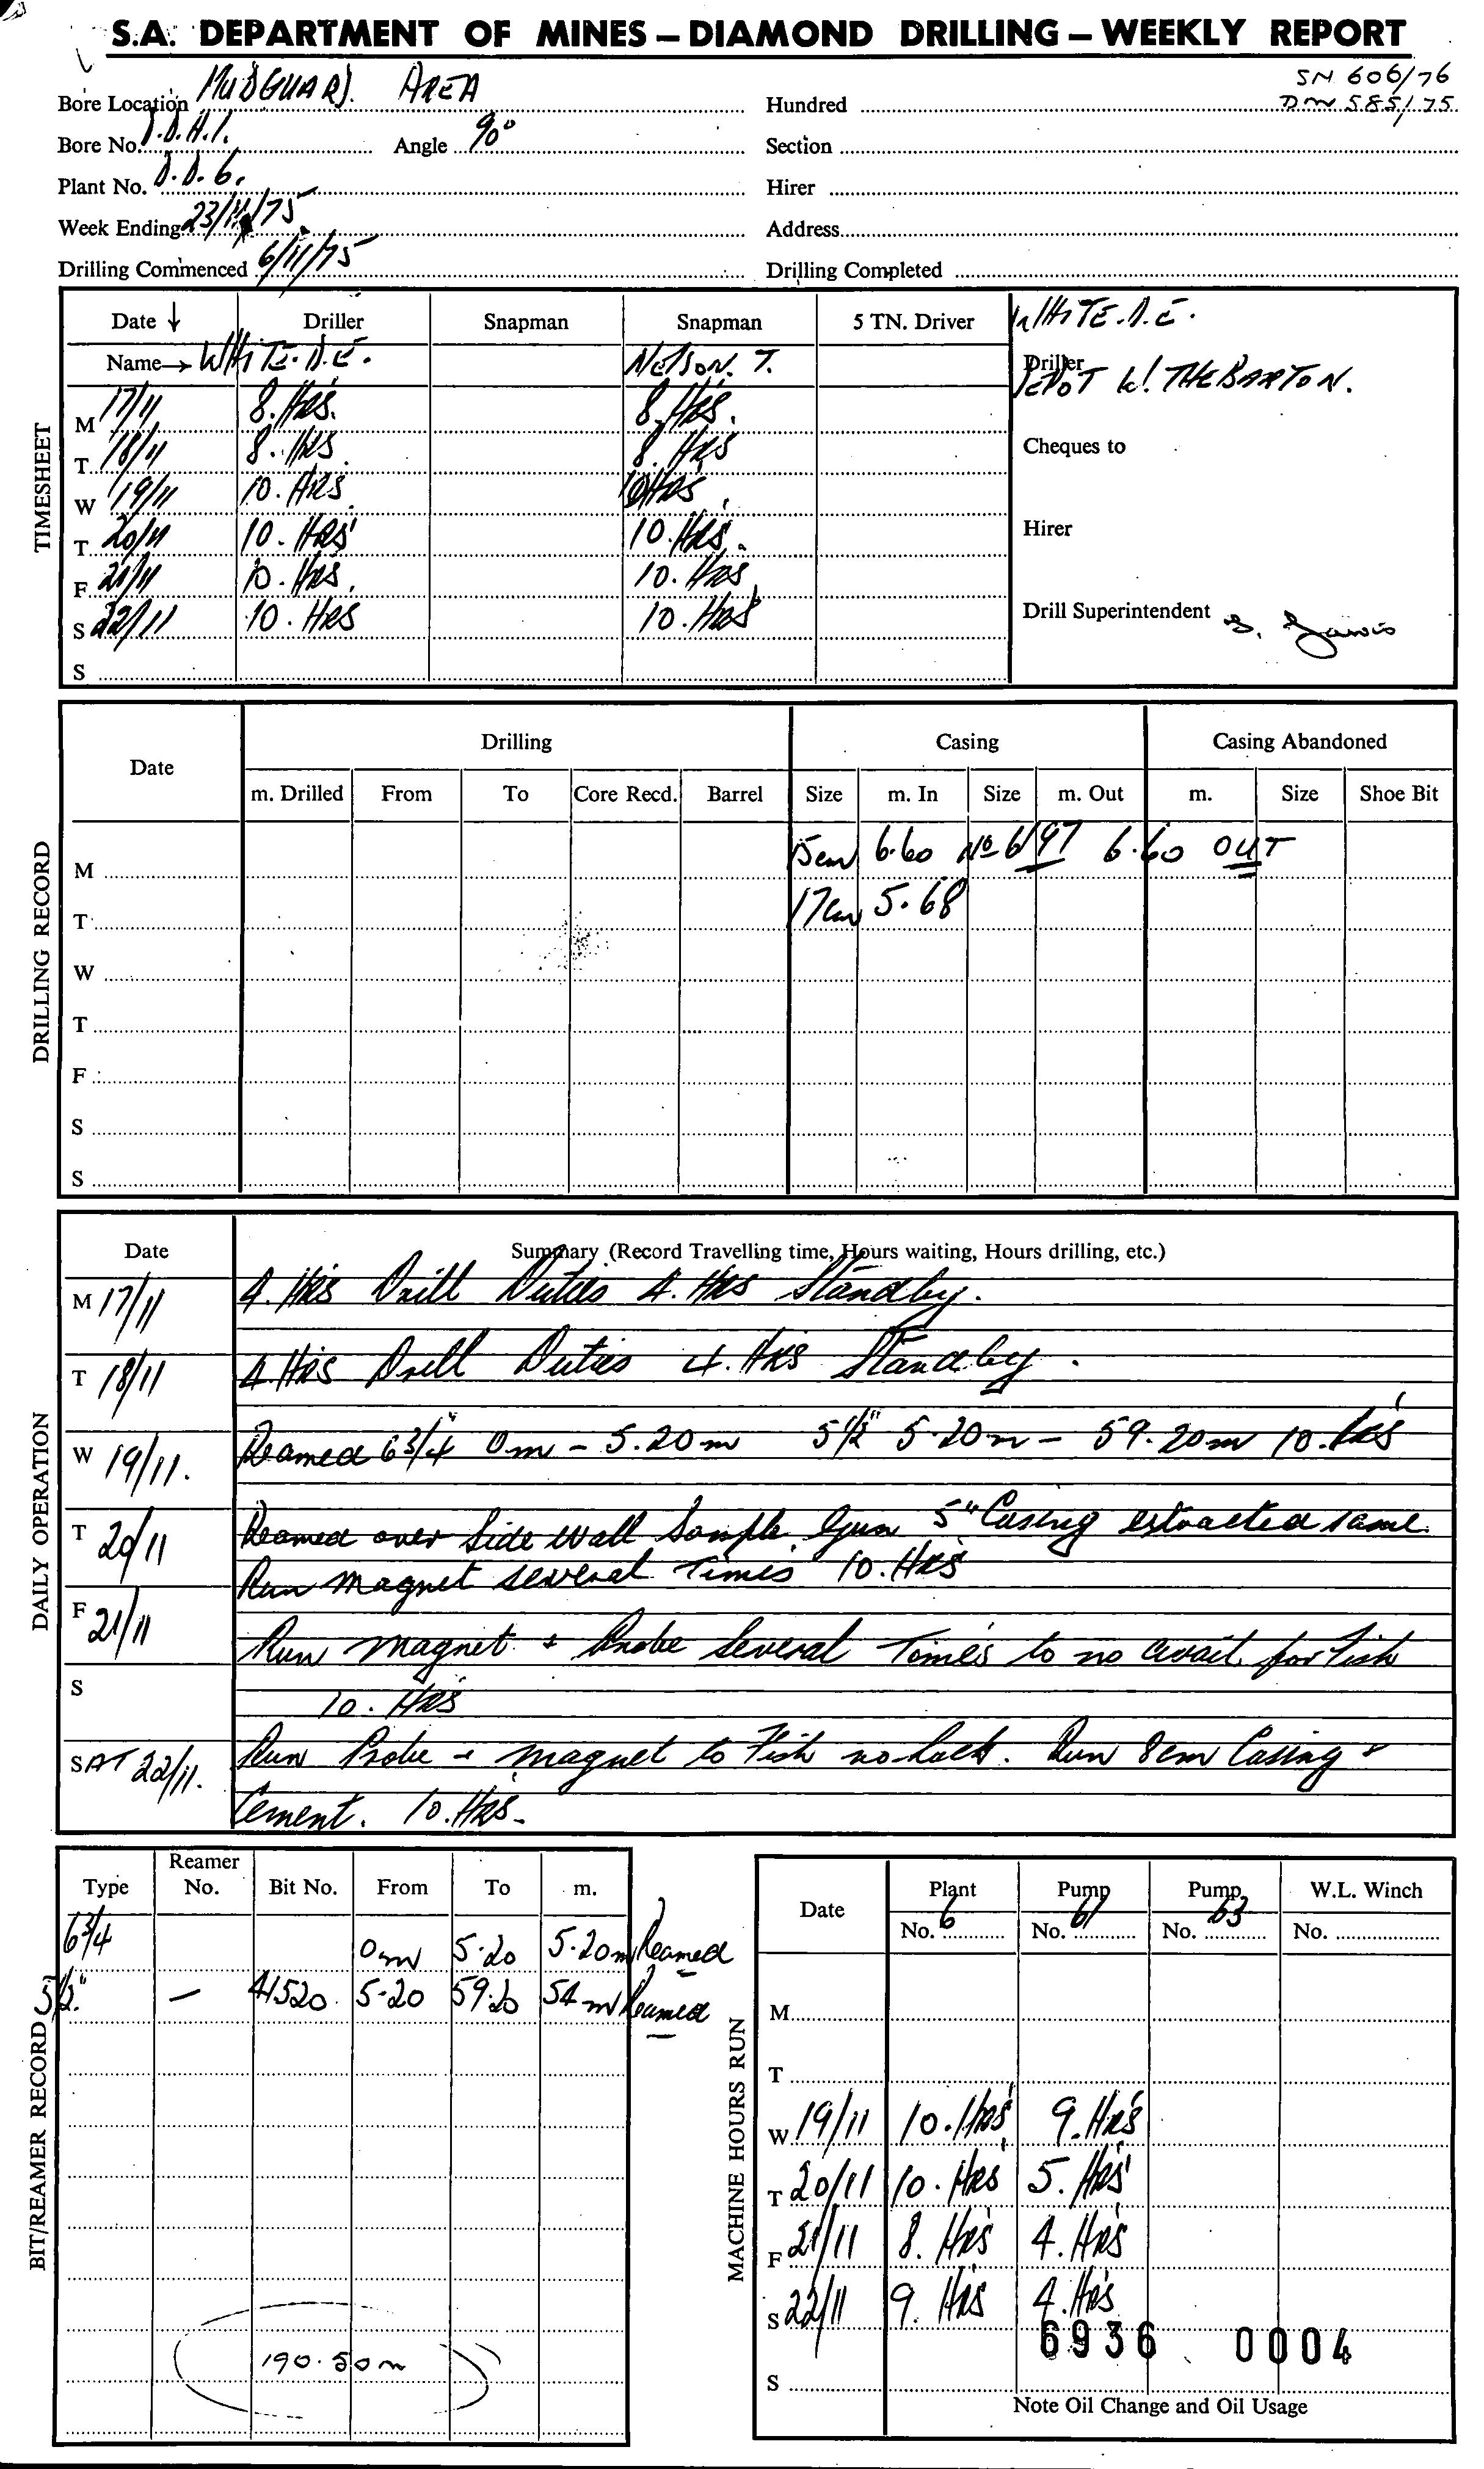 S.A. DEPARTMENT OF MINES – DIAMOND DRILLING – WEEKLY REPORT
SN 606/76
DM 585/75
Bore Location MUDGUARD. AREA Hundred
Bore No. D.D.H.1. Angle 90° Section
Plant No. D.D.6. Hirer
Week Ending 23/11/75 Address
Drilling Commenced 6/11/75 Drilling Completed
TIMESHEET
Date ↓ Driller Snapman Snapman 5 TN. Driver WHITE.D.E.
Name→ WHITE.D.E. NELSON. T. Driller
DEPOT W! THEBARTON.
M 17/11 8.HRS. 8.HRS.
T 18/11 8.HRS 8 HRS Cheques to
W 19/11 10.HRS 10HRS
T 20/11 10.HRS 10.HRS. Hirer
F 21/11 10.HRS. 10.HRS
S 22/11 10.HRS 10.HRS Drill Superintendent
S
DRILLING RECORD
Date Drilling Casing Casing Abandoned
m. Drilled From To Core Recd. Barrel Size m. In Size m. Out m. Size Shoe Bit
M 15cm 6.60 No 6/97 6.60 OUT
T 17cm 5.68
W
T
F
S
S
DAILY OPERATION
Date Summary (Record Travelling time, Hours waiting, Hours drilling, etc.)
M 17/11 4. HRS Drill Duties 4. HRS Standby.
T 18/11 4 HRS Drill Duties 4. HRS Standby.
W 19/11. Reamed 6 3/4" 0m – 5.20m 5 1/2" 5.20m – 59.20m 10.HRS
T 20/11 Reamed over Side wall Sample Gun 5" Casing extracted same.
Run magnet several Times 10.HRS
F 21/11 Run magnet + Probe Several Times to no avail for Fish
S 10. HRS
SAT 22/11. Run Probe + magnet to Fish no luck. Run 8cm Casing +
Cement. 10.HRS.
BIT/REAMER RECORD
Type Reamer No. Bit No. From To m.
6 3/4 0m 5.20 5.20m Reamed
5 1/2" – 41520 5.20 59.20 54 m Reamed
190.50m
MACHINE HOURS RUN
Date Plant Pump Pump W.L. Winch
No. 6 No. 61 No. 63 No.
M
T
W 19/11 10.HRS 9.HRS
T 20/11 10.HRS 5.HRS
F 21/11 8.HRS 4.HRS
S 22/11 9.HRS 4.HRS
6936 0004
S
Note Oil Change and Oil Usage